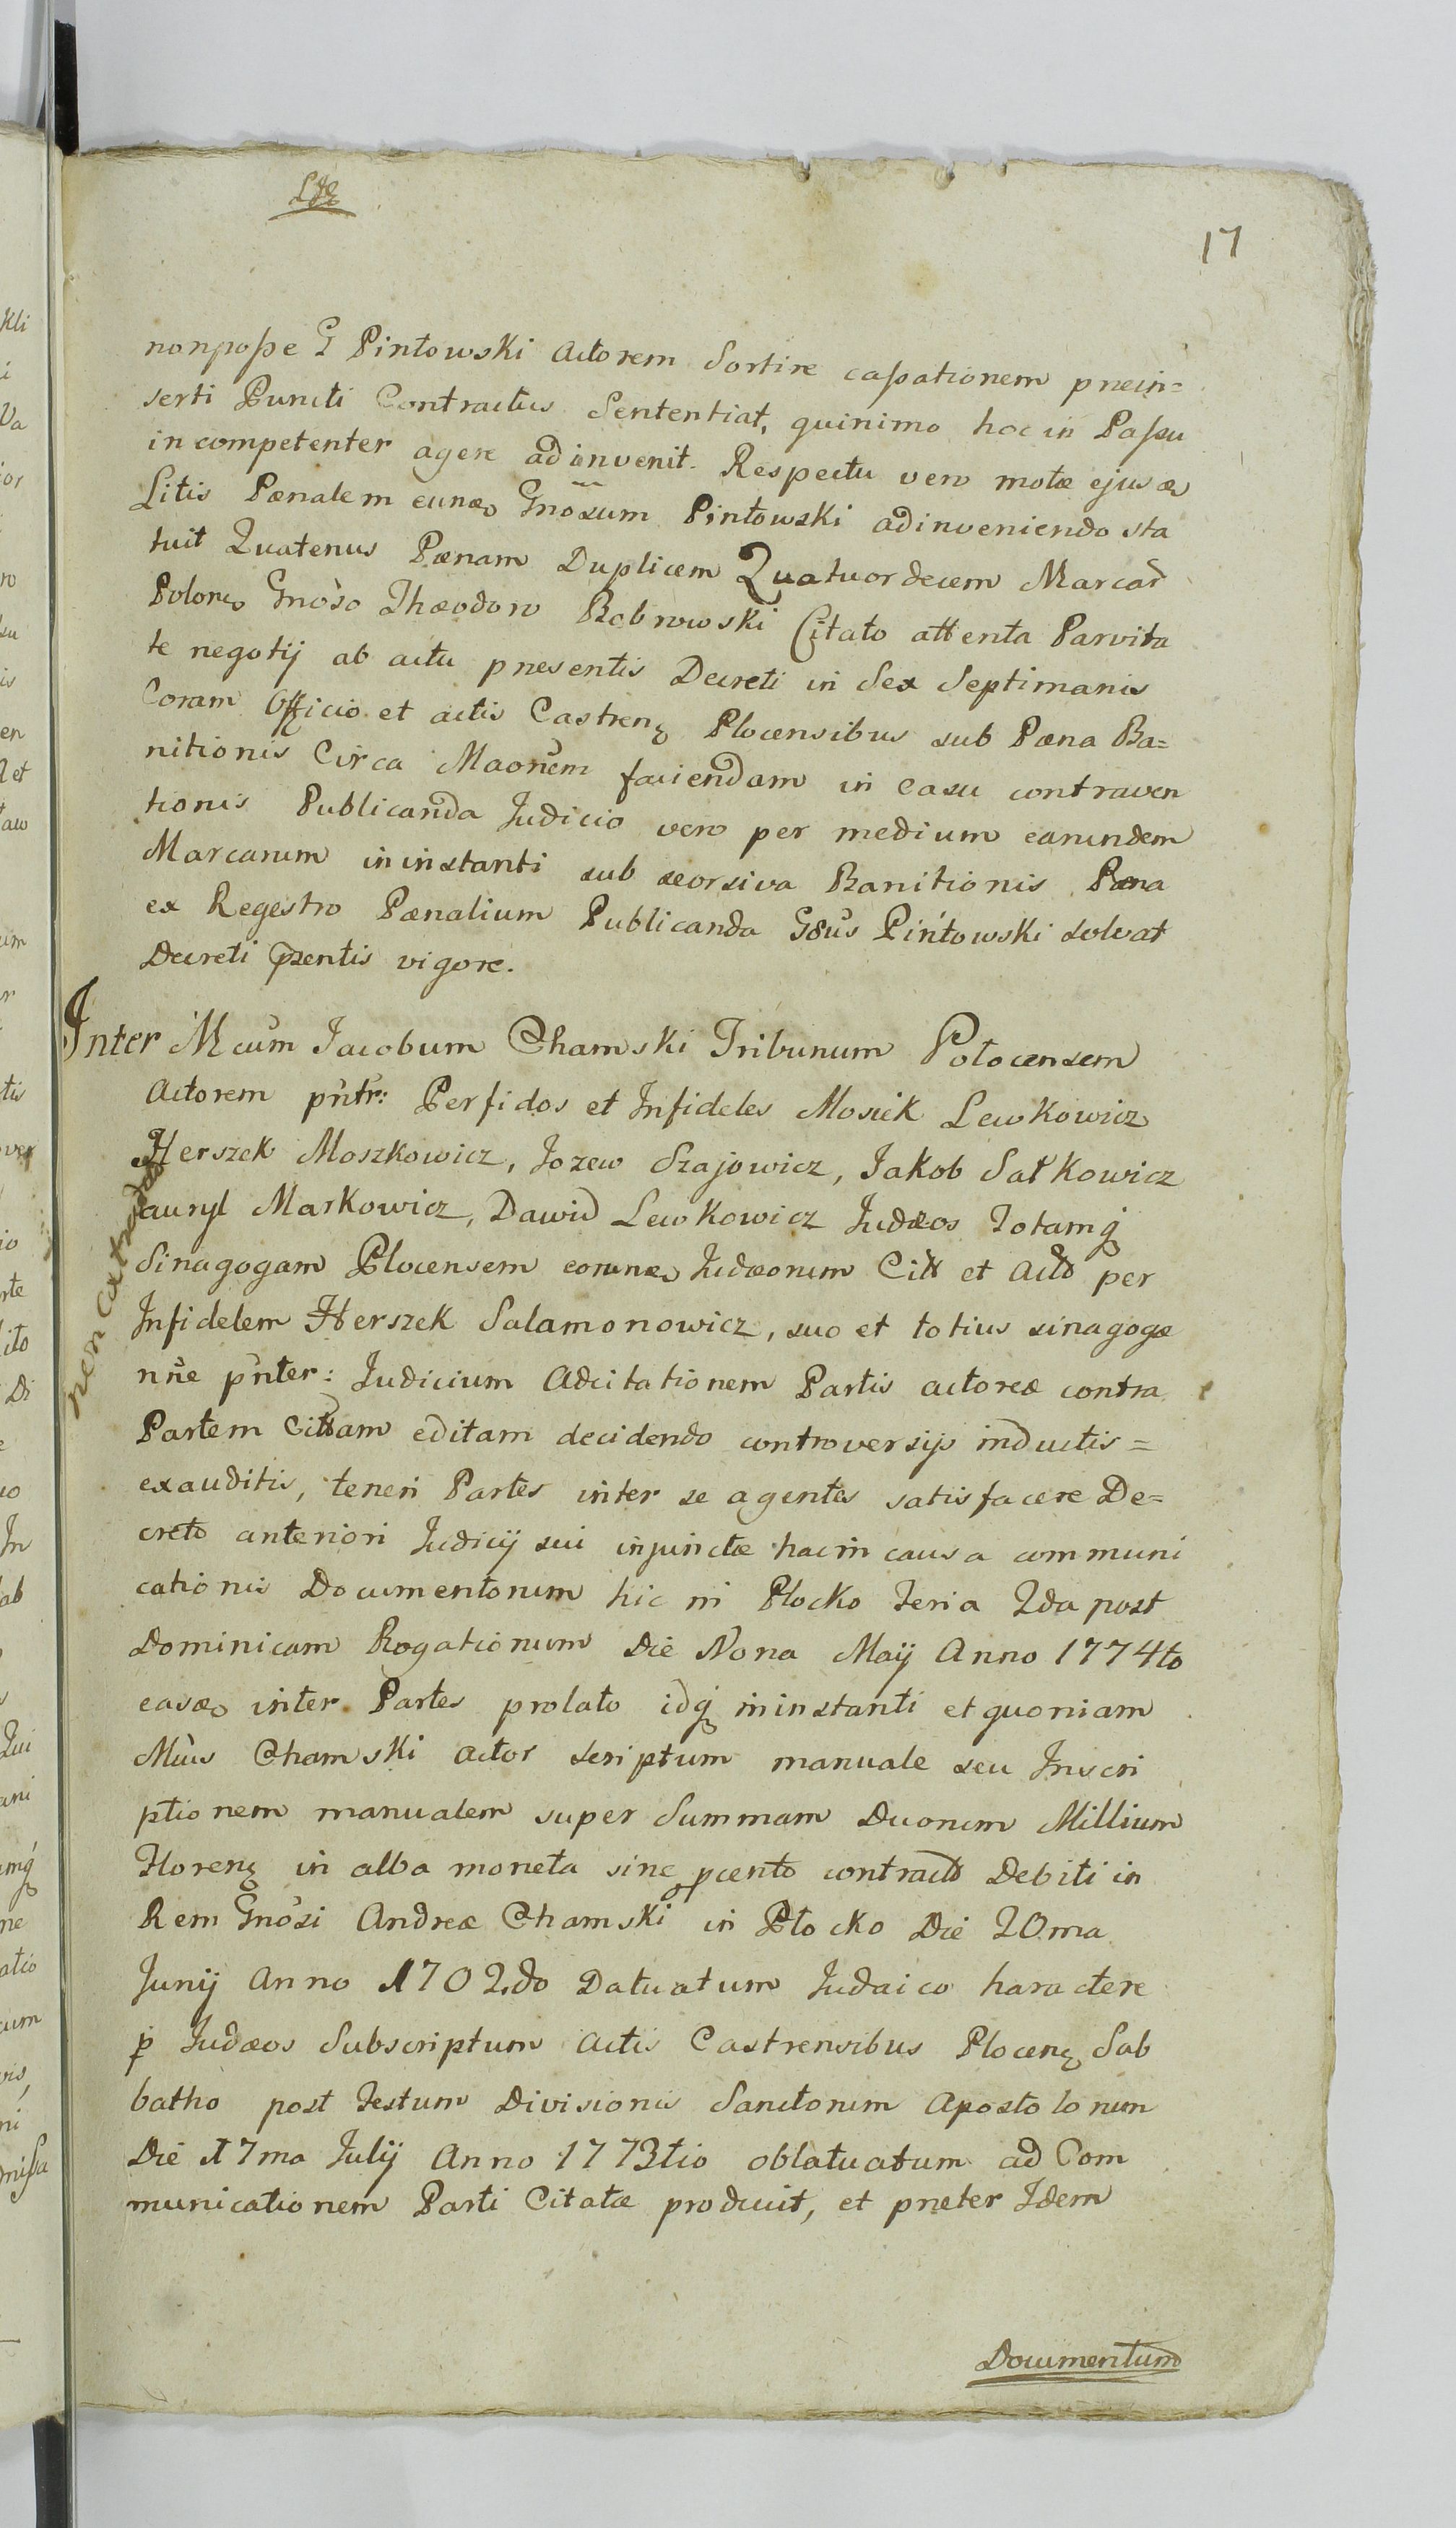 17
nonposse G Pintowski Actorem Sortire cassationem prein=
serti Puncti Contractus Sententiat, quinimo hoc in Passu
incompetenter agere adinvenit. Respectu vero motæ ejusd
Litis Pænalem eund Gnosum Pintowski adinveniendo sta
tuit Quatenus Pænam Duplicem Quatuordecem Marcar
Polon Gnoso Thæodoro Bobrowski Citato attenta Parvita
te negotij ab actu presentis Decreti in Sex Septimanis
Coram Officio et actis Castren Plocensibus sub Pæna Ba=
nitionis Circa Maonem faciendam in casu contraven
tionis Publicanda Judicio vero per medium earundem
Marcarum in instanti sub seorsiva Banitionis Pæna
ex Regestro Pænalium Publicanda Gsus Pintowski solvat
Decreti pzentis vigore.
Inter Mcum Jacobum Chamski Tribunum Potocensem
Actorem pntr: Perfidos et Infideles Mosiek Lewkowicz
Herszek Moszkowicz, Jozew Szajowicz, Jakob Satkowicz
auryl Markowicz, Dawid Lewkowicz Judæos Totamq
Sinagogam Plocensem eorund Judæorum Citt et Actd per
Infidelem Herszek Salamonowicz, suo et totius sinagogæ
nne pnter: Judicium Adcitationem Partis actoreæ contra
Partem Cittam editam decidendo controversijs inductis=
exauditis, teneri Partes inter se agentes satisfacere De=
creto anteriori Judicij sui injunctæ hac in causa communi
cationis Documentorum hic in Plocko Feria 2da post
Dominicam Rogationum Die Nona Maij Anno 1774to
easd inter Partes prolato idq in instanti et quoniam
Mcus Chamski Actor scriptum manuale seu Inscri
ptionem manualem super Summam Duorum Millium
Floren in alba moneta sine pcento contracti Debiti in
Rem Gnosi Andreæ Chamski in Plocko Die 20ma
Junij Anno 1702do Datuatum Judaico haractere
p Judæos Subscriptum Actis Castrensibus Plocen Sab
batho post Festum Divisionis Sanctorum Apostolorum
Die 17ma Julij Anno 1773tio oblatuatum ad Com
municationem Parti Citatæ produxit, et preter Idem
Documentum
non extradat